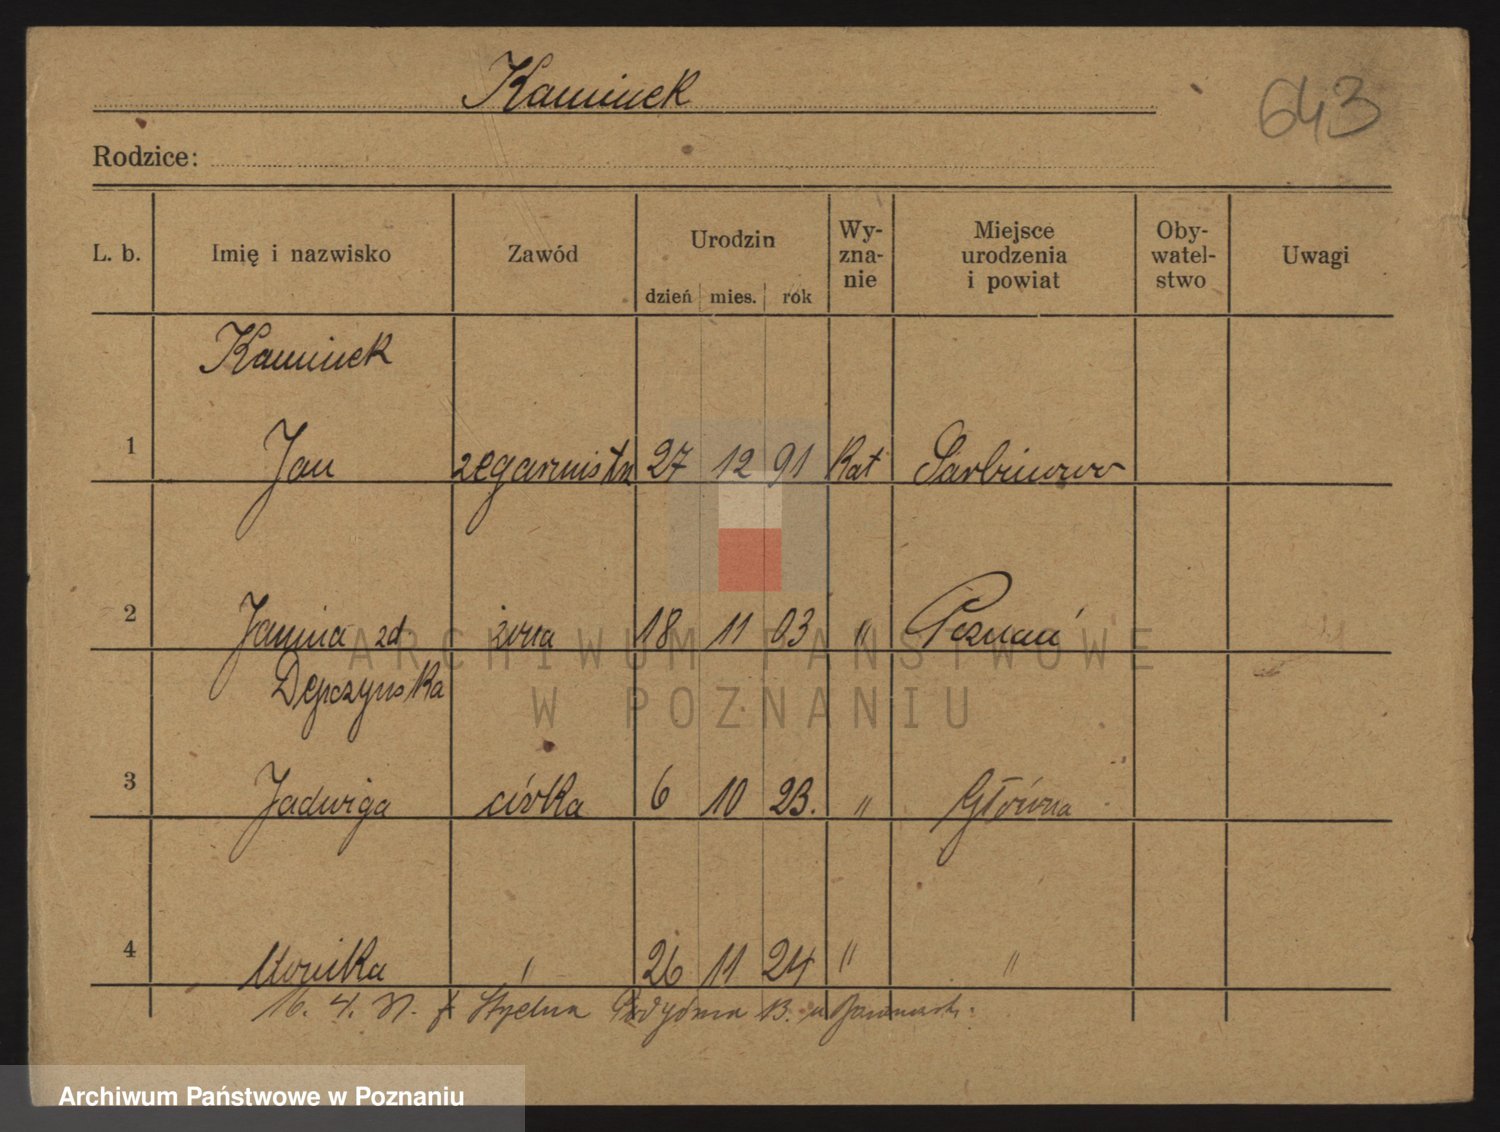 Kaminek
643
Rodzice:
L. b. Imię i nazwisko Zawód Urodzin dzień mies. rok Wy-zna-nie Miejsce urodzenia i powiat Oby-watel-stwo Uwagi
Kaminek
1 Jan zegarmistrz 27 12 91 kat Sarbinowo
2 Janina zd żona 18 11 03 " Poznań
Depczyńska
3 Jadwiga córka 6 10 23. " Główna
4 Monika " 26 11 24 " "
16. 4.
ARCHIWUM PAŃSTWOWE
W POZNANIU
Archiwum Państwowe w Poznaniu